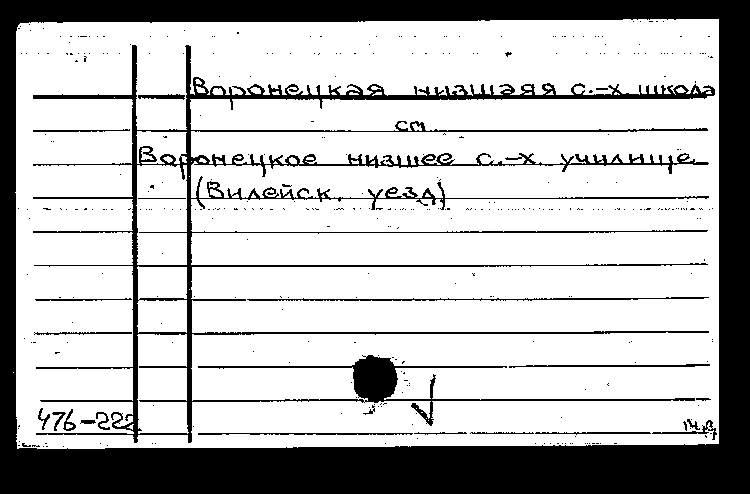 Воронецкая низшая с.-х. школа
см.
Воронецкое низшее с.-х. училище
(Вилейск. уезд)
476-222